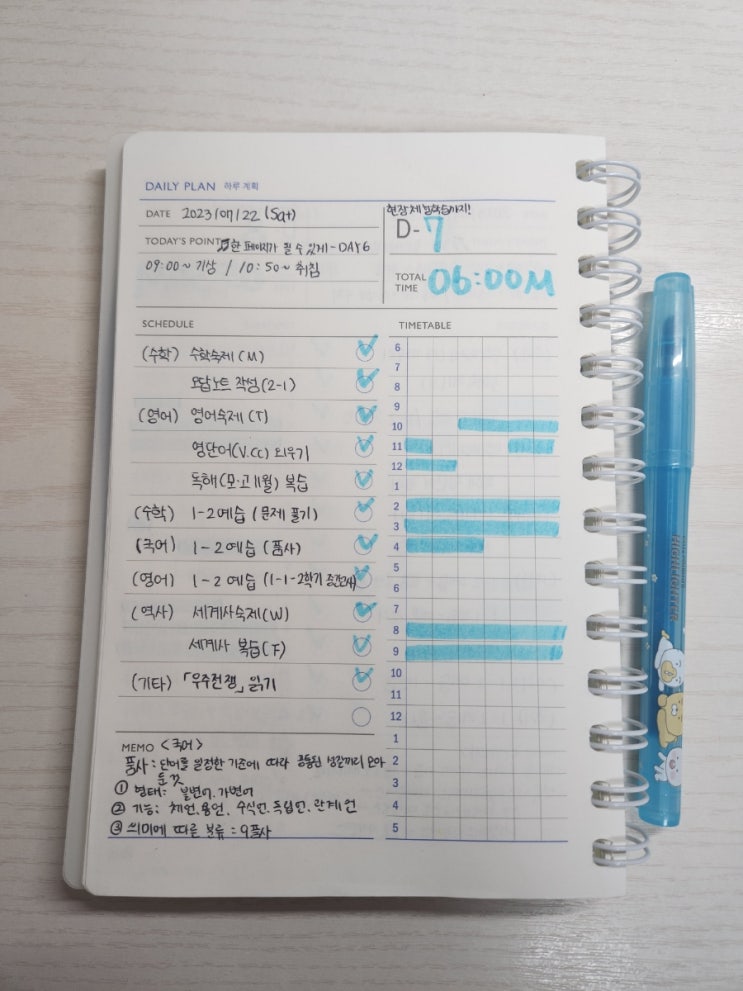 DAILY PLAN 하루 계획
DATE 2023/07/22 (Sat)
현장체험학습까지!
D-7
TODAY'S POINT 한 페이지가 될 수 있게-DAY6
09:00~ 기상 / 10:50~ 취침
TOTAL TIME 06:00M
SCHEDULE
(수학) 수학숙제(M)
오답노트 작성(2-1)
(영어) 영어숙제(T)
영단어(V.CC) 외우기
독해(모.고 11월) 복습
(수학) 1-2예습 (문제 풀기)
(국어) 1-2예습 (품사)
(영어) 1-2예습 (1-1-2학기 중간고사)
(역사) 세계사숙제(W)
세계사 복습(F)
(기타) 「우주전쟁」 읽기
TIMETABLE
6
7
8
9
10
11
12
1
2
3
4
5
6
7
8
9
10
11
12
1
2
3
4
5
MEMO <국어>
품사: 단어를 일정한 기준에 따라 공통된 성질끼리 모아
둔 것
① 형태: 불변어, 가변어
② 기능: 체언, 용언, 수식언, 독립언, 관계언
③ 의미에 따른 분류 = 9품사
HIGHLIGHTER